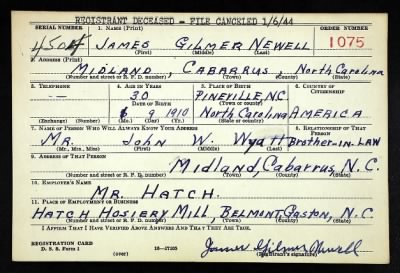 REGISTRANT DECEASED - FILE CANCELED 1/6/44
REGISTRATION CARD
SERIAL NUMBER 1. NAME (Print) ORDER NUMBER
JAMES GILMER NEWELL 1075
(First) (Middle) (Last)
2. ADDRESS (Print)
MIDLAND, CABARRUS North Carolina
(Number and street or R. F. D. number) (Town) (County) (State)
3. TELEPHONE 4. AGE IN YEARS 5. PLACE OF BIRTH 6. COUNTRY OF CITIZENSHIP
-- 30 PINEVILLE, N.C.
DATE OF BIRTH (Town or county)
9 1910 North Carolina AMERICA
(Exchange) (Number) (Mo.) (Day) (Yr.) (State or country)
7. NAME OF PERSON WHO WILL ALWAYS KNOW YOUR ADDRESS 8. RELATIONSHIP OF THAT PERSON
MR. John W. Wyatt Brother-in-LAW
(Mr., Mrs., Miss) (First) (Middle) (Last)
9. ADDRESS OF THAT PERSON
Midland, Cabarrus, N.C.
(Number and street or R. F. D. number) (Town) (County) (State)
10. EMPLOYER'S NAME
MR. HATCH.
11. PLACE OF EMPLOYMENT OR BUSINESS
HATCH HOSIERY MILL, BELMONT, GASTON, N.C.
(Number and street or R. F. D. number) (Town) (County) (State)
I AFFIRM THAT I HAVE VERIFIED ABOVE ANSWERS AND THAT THEY ARE TRUE.
REGISTRATION CARD
D. S. S. Form 1 (over) 16-17105 James Gilmer Newell
(Registrant's signature)